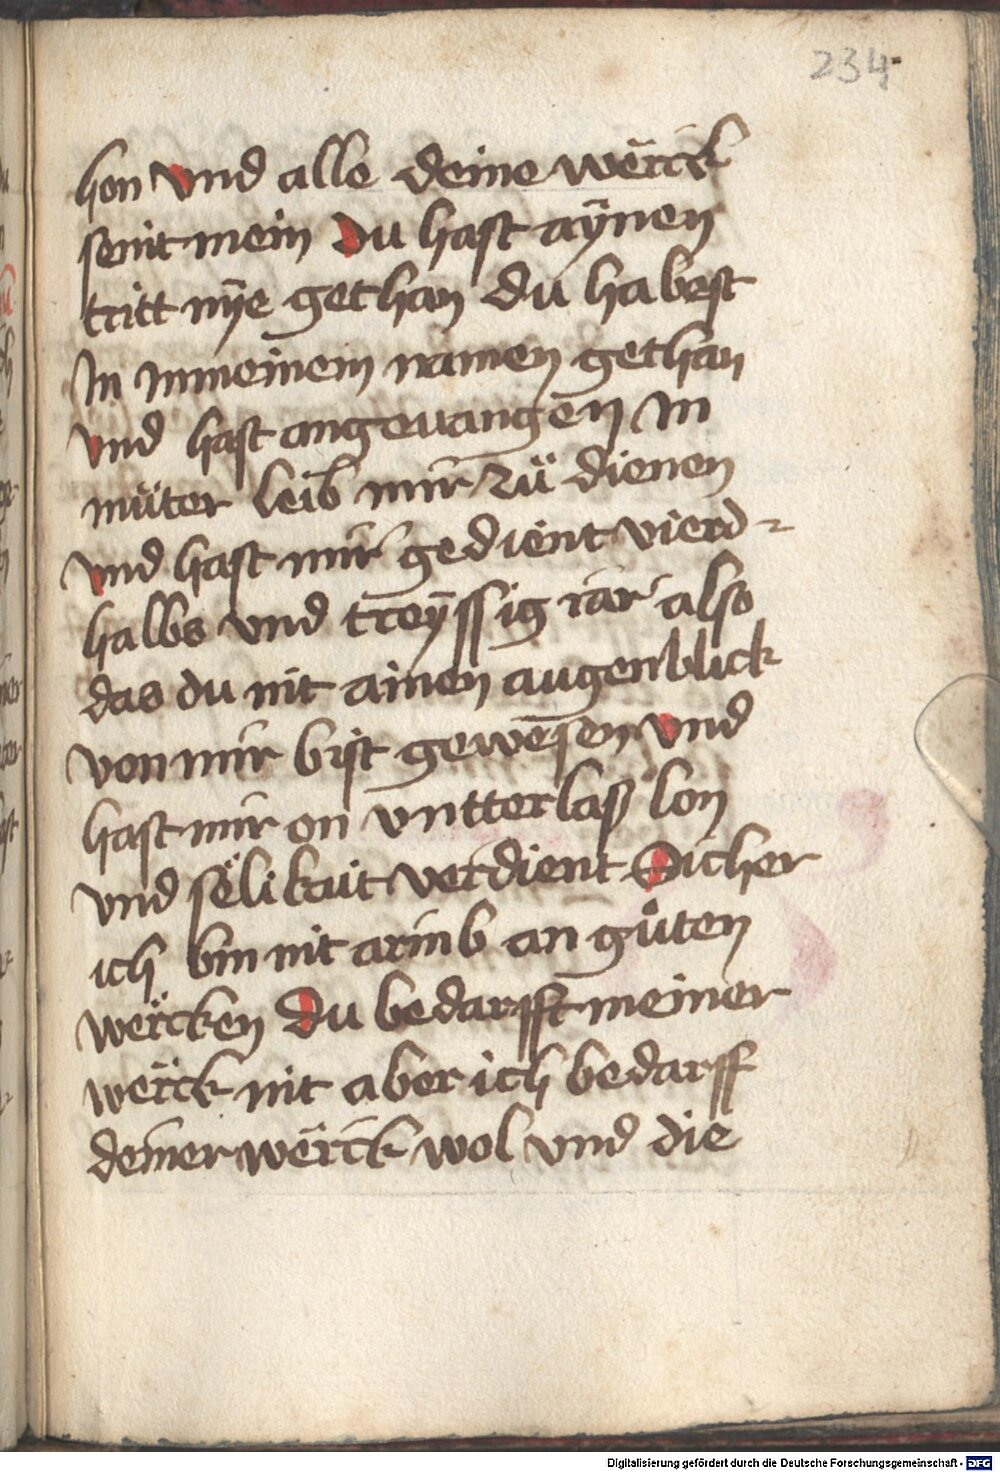 234
hon vnd alle deine werck
seint mein Du hast aÿnen
tritt nÿe gethan du habest
In Inmeinem namen gethan
vnd hast angeuangen In
müter leib mir zü dienen
vnd hast mir gedient vierd-
halbs vnd treÿssig iar also
das du nit ainen augenblick
von mir bist gewesen vnd
hast mir on vntterlaß lon
vnd sëlikait verdient Sicher
ich bin nit armb an gůten
wercken Du bedarfft meiner
werck nit aber ich bedarff
deiner werck wol vnd die
Digitalisierung gefördert durch die Deutsche Forschungsgemeinschaft - DFG